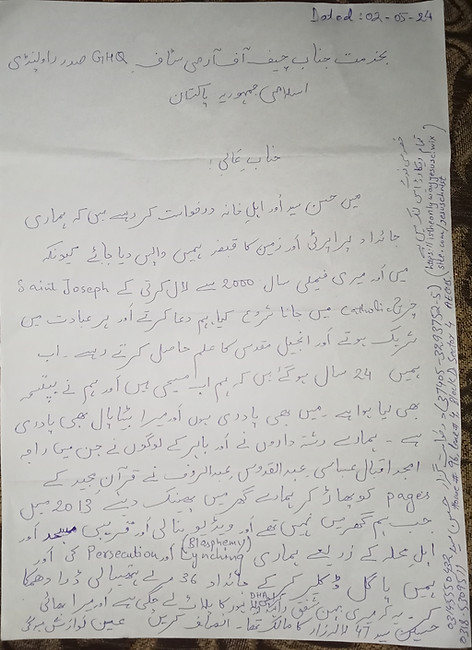 Dated: 02-05-24
بخدمت جناب چیف آف آرمی سٹاف GHQ صدر راولپنڈی
اسلامی جمہوریہ پاکستان
جناب عالی!
میں حسن سید اور اہل خانہ درخواست کر رہے ہیں کہ ہماری
جائداد پراپرٹی اور زمین کا قبضہ ہمیں واپس دیا جائے کیونکہ
میں اور میری فیملی سال 2000 سے لال کرتی کے Saint Joseph
Catholic چرچ میں جانا شروع کیا، ہم دعا کرتے اور ہر عبادت میں
شریک ہوتے اور انجیل مقدس کا علم حاصل کرتے رہے۔ اب
ہمیں 24 سال ہو گئے ہیں کہ ہم اب مسیحی ہیں اور ہم نے بپتسمہ
بھی لیا ہوا ہے۔ میں بھی پادری ہوں اور میرا بیٹا پال بھی پادری
ہے۔ ہمارے رشتہ داروں نے اور باہر کے لوگوں نے جن میں راجہ
امجد اقبال عباسی عبدالقدوس عبدالروف نے قرآن مجید کے
pages کو پھاڑ کر ہمارے گھر میں پھینک دیے 2013 میں
جب ہم گھر میں نہیں تھے اور ویڈیو بنا لی اور قریبی مسجد اور
اہل محلہ کے ذریعے ہماری (Blasphemy) Persecution اور Lynching کی اور
ہمیں پاگل کر کے جائداد 36 مرلے ہتھیالی ڈرا دھمکا
کر میری بہن DHA کا پلاٹ لے چکی ہے اور میرا بھائی
سید 47 لالہ زار کا مالک تھا۔ انصاف کریں عین نوازش ہوگی
تمام ریکارڈ اس لنک میں ہے
(https://itheonlywayjesusc.wix
site.com/jesuschrist
درخواست گزار حسن سید (37405-3298752-5)
House # 96 Lane 4 Block D Sector 4 AECHS
03455550632